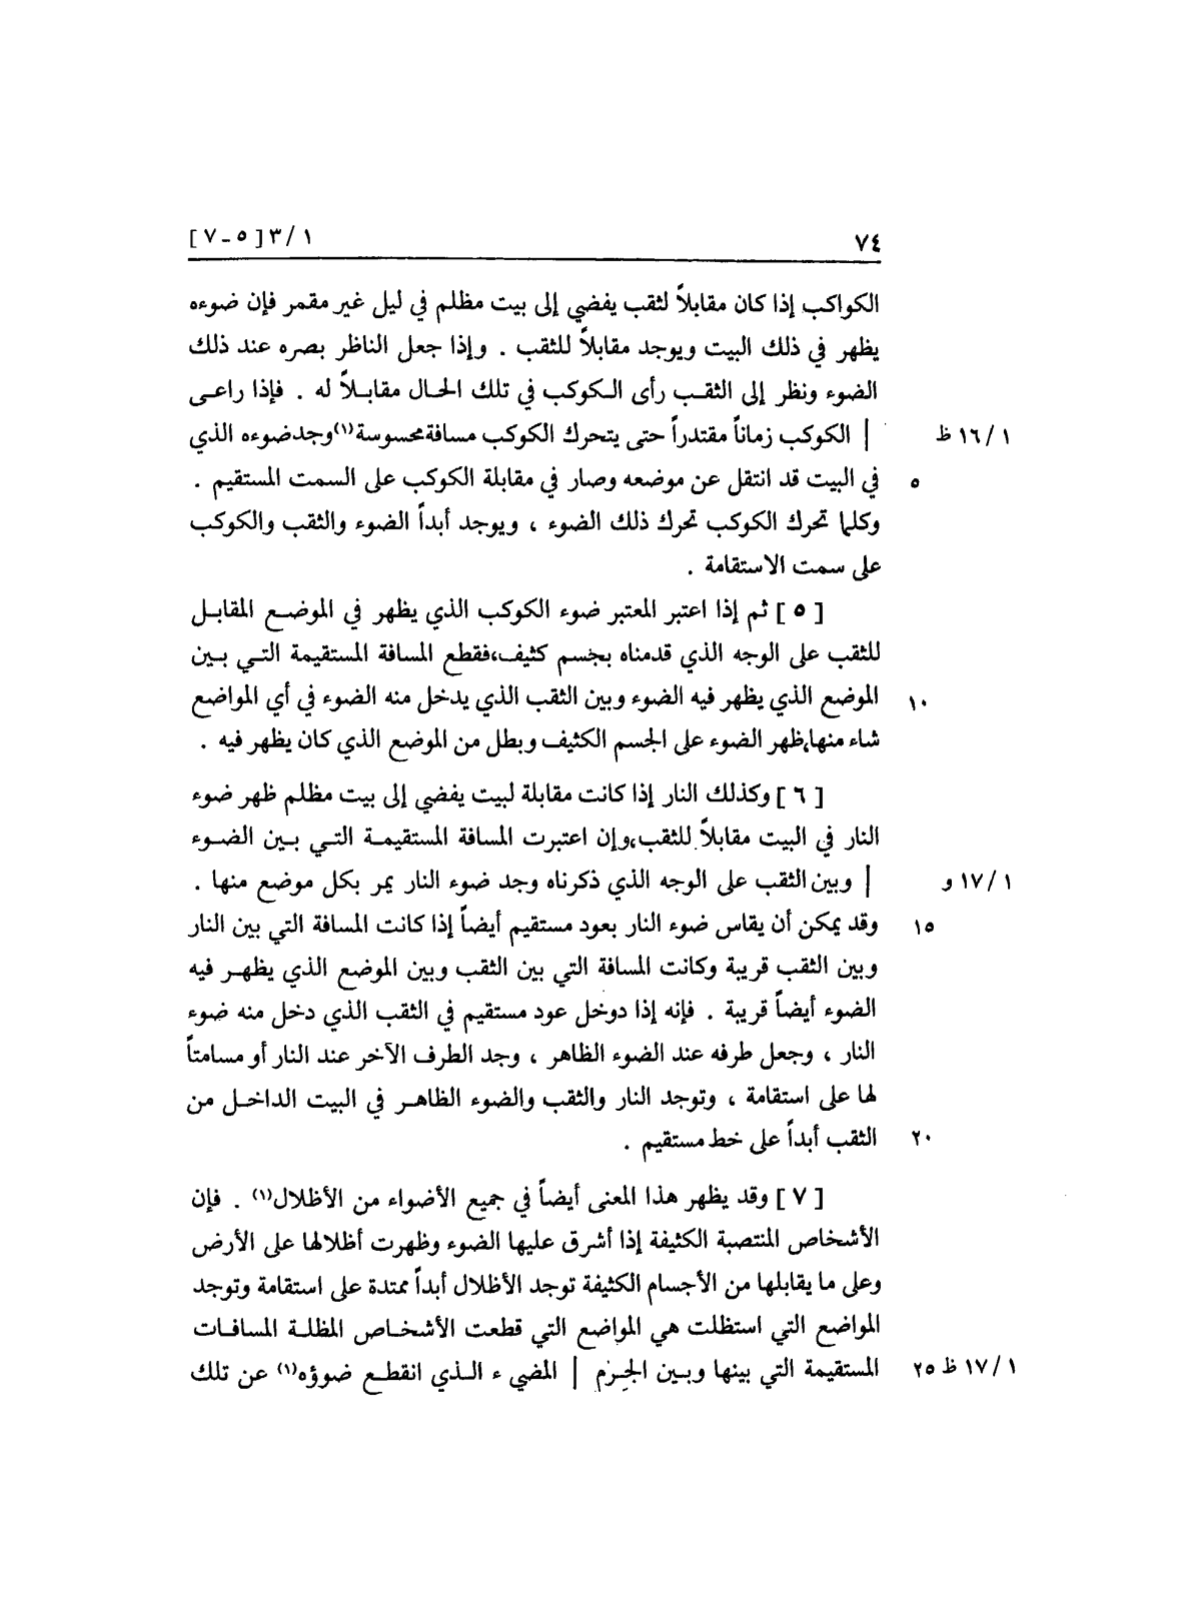 ٧٤ ١/٣ [٥ - ٧]
الكواكب إذا كان مقابلاً لثقب يفضي إلى بيت مظلم في ليل غير مقمر فإن ضوءه
يظهر في ذلك البيت ويوجد مقابلاً للثقب . وإذا جعل الناظر بصره عند ذلك
الضوء ونظر إلى الثقب رأى الكوكب في تلك الحال مقابلاً له . فإذا راعى
١/١٦ ظ | الكوكب زماناً مقتدراً حتى يتحرك الكوكب مسافة محسوسة(١) وجد ضوءه الذي
٥ في البيت قد انتقل عن موضعه وصار في مقابلة الكوكب على السمت المستقيم .
وكلما تحرك الكوكب تحرك ذلك الضوء ، ويوجد أبداً الضوء والثقب والكوكب
على سمت الاستقامة .
[ ٥ ] ثم إذا اعتبر المعتبر ضوء الكوكب الذي يظهر في الموضع المقابل
للثقب على الوجه الذي قدمناه بجسم كثيف،فقطع المسافة المستقيمة التي بين
١٠ الموضع الذي يظهر فيه الضوء وبين الثقب الذي يدخل منه الضوء في أي المواضع
شاء منها،ظهر الضوء على الجسم الكثيف وبطل من الموضع الذي كان يظهر فيه .
[ ٦ ] وكذلك النار إذا كانت مقابلة لبيت يفضي إلى بيت مظلم ظهر ضوء
النار في البيت مقابلاً للثقب،وإن اعتبرت المسافة المستقيمة التي بين الضوء
١/١٧ و | وبين الثقب على الوجه الذي ذكرناه وجد ضوء النار يمر بكل موضع منها .
١٥ وقد يمكن أن يقاس ضوء النار بعود مستقيم أيضاً إذا كانت المسافة التي بين النار
وبين الثقب قريبة وكانت المسافة التي بين الثقب وبين الموضع الذي يظهر فيه
الضوء أيضاً قريبة . فإنه إذا دوخل عود مستقيم في الثقب الذي دخل منه ضوء
النار ، وجعل طرفه عند الضوء الظاهر ، وجد الطرف الآخر عند النار أو مسامتاً
لها على استقامة ، وتوجد النار والثقب والضوء الظاهر في البيت الداخل من
٢٠ الثقب أبداً على خط مستقيم .
[ ٧ ] وقد يظهر هذا المعنى أيضاً في جميع الأضواء من الأظلال(١) . فإن
الأشخاص المنتصبة الكثيفة إذا أشرق عليها الضوء وظهرت أظلالها على الأرض
وعلى ما يقابلها من الأجسام الكثيفة توجد الأظلال أبداً ممتدة على استقامة وتوجد
المواضع التي استظلت هي المواضع التي قطعت الأشخاص المظلة المسافات
١/١٧ ظ ٢٥ المستقيمة التي بينها وبين الجِرْم | المضيء الذي انقطع ضوؤه(١) عن تلك